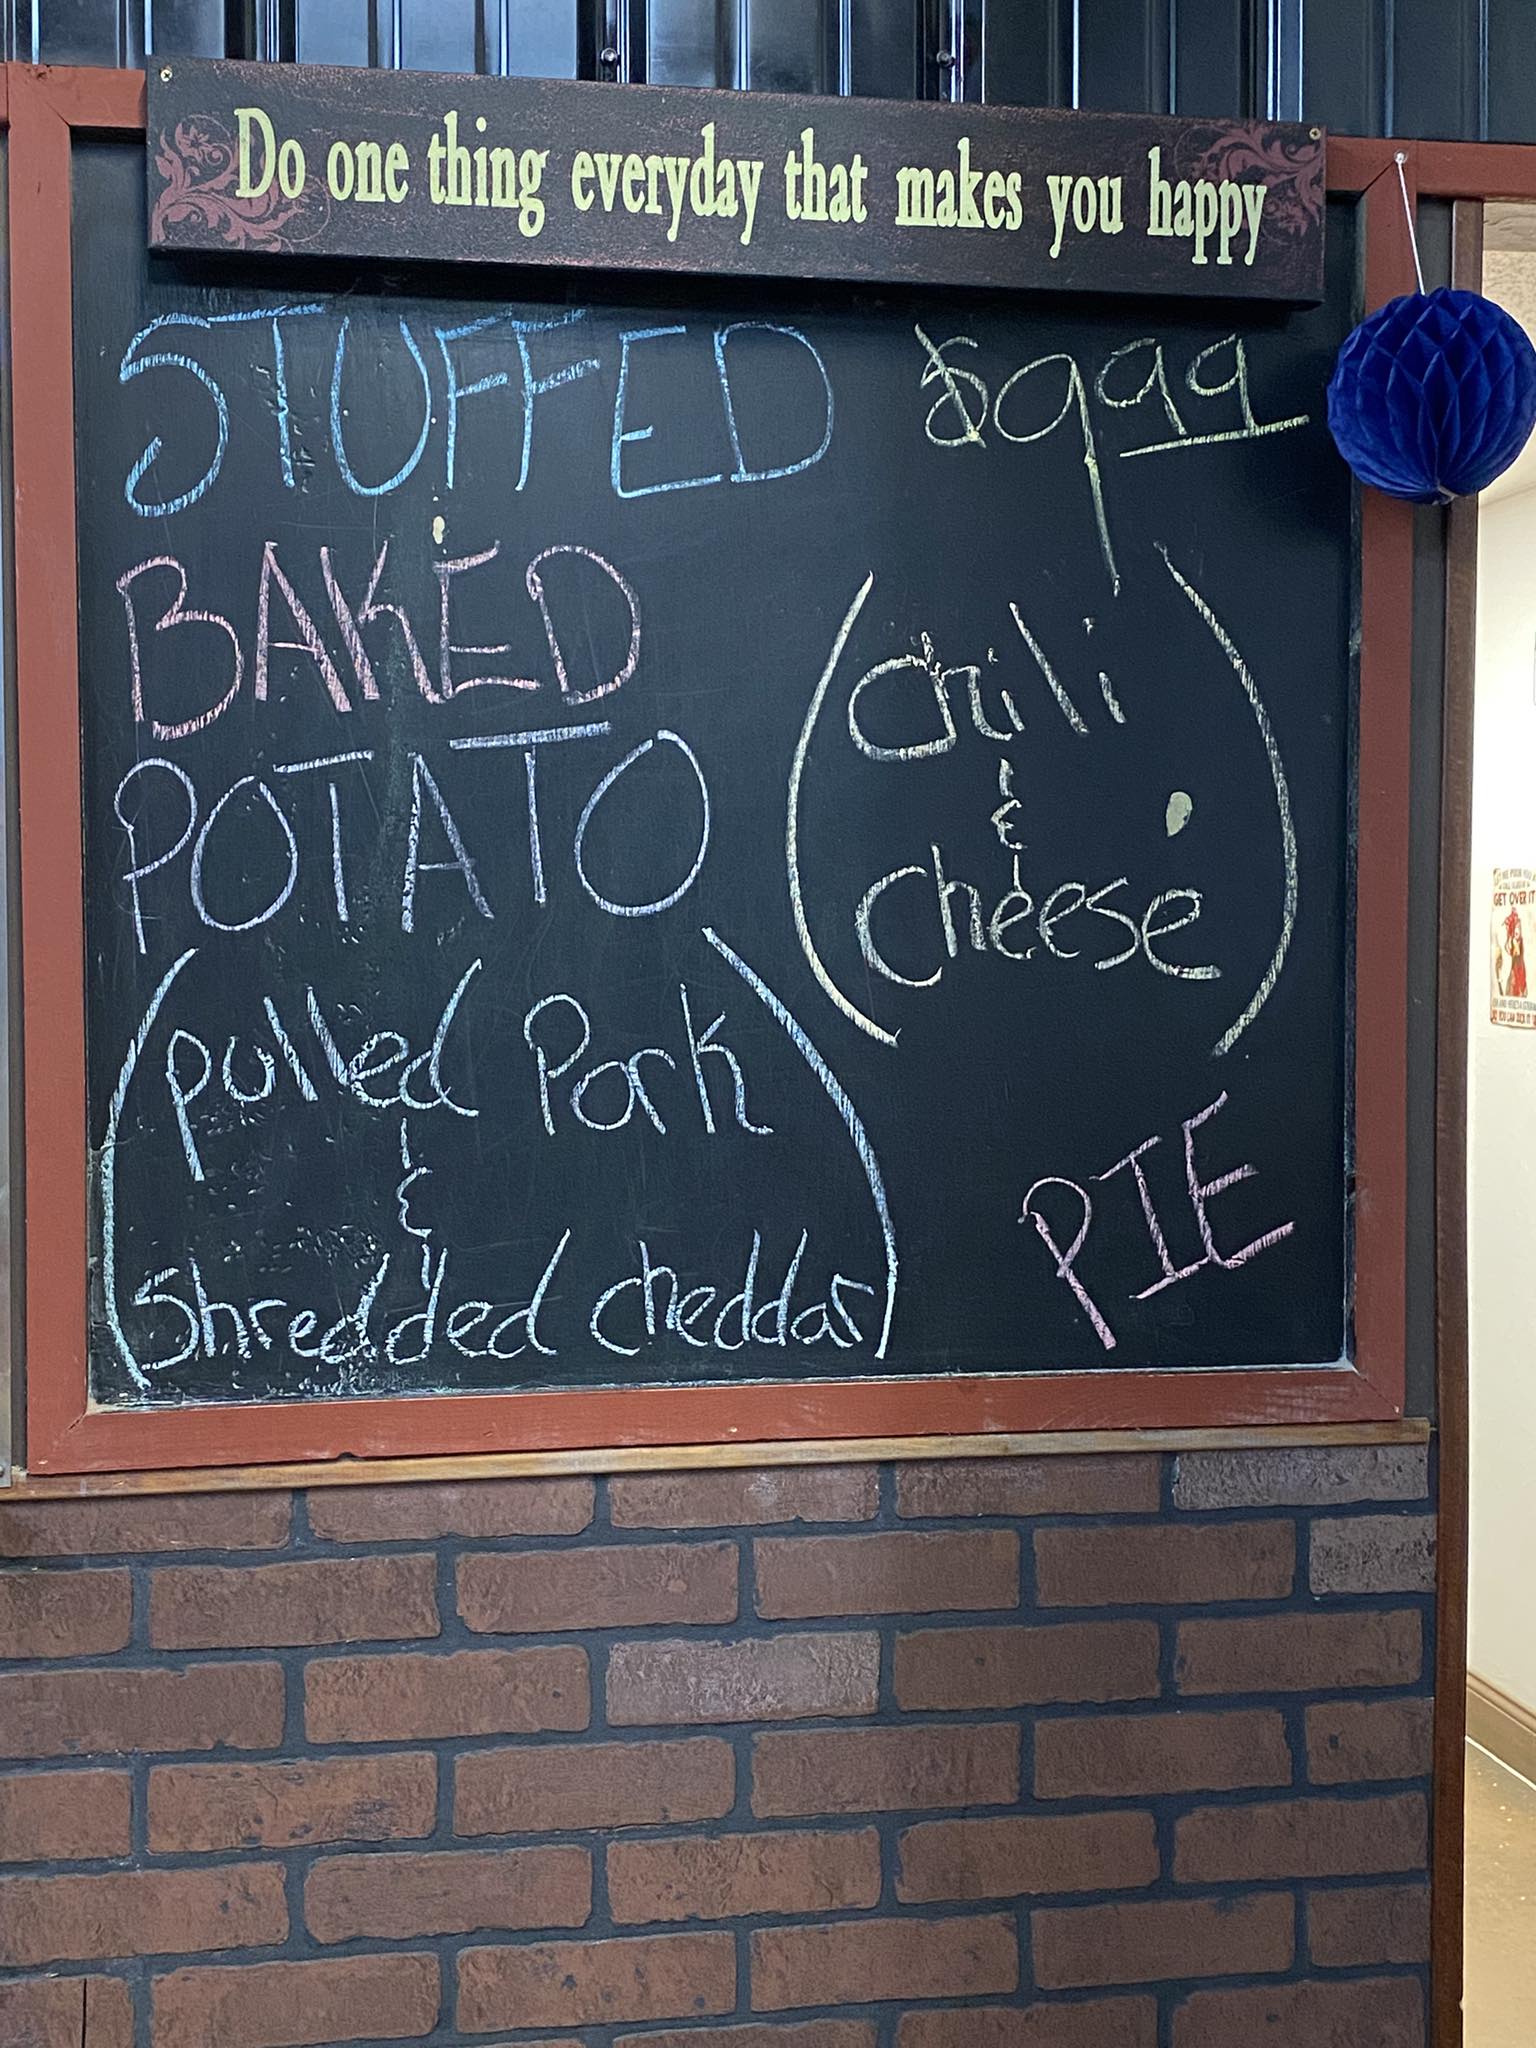 Do one thing everyday that makes you happy
STUFFED $9 99
BAKED
POTATO
(pulled Pork
&
Shredded cheddar)
(chili
&
cheese)
PIE
GET OVER IT